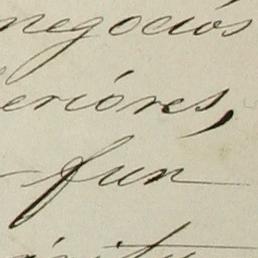 negocios
eriores,
fun